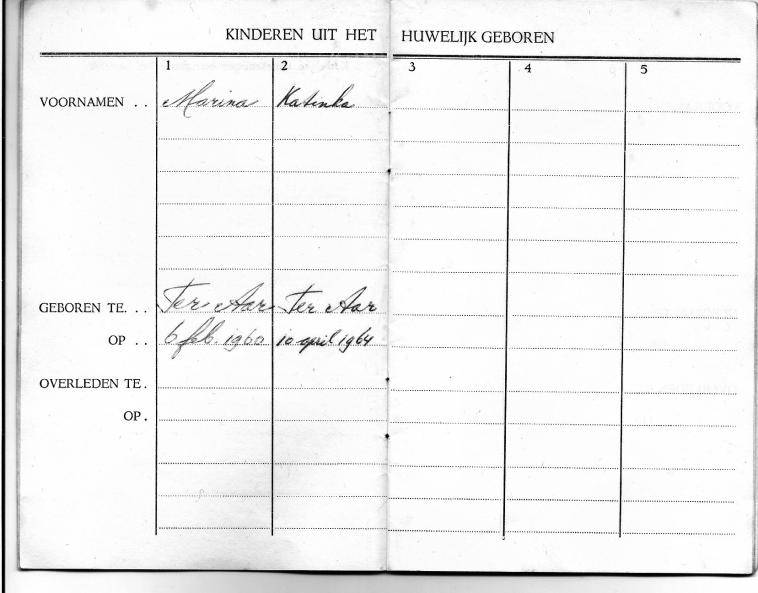 KINDEREN UIT HET HUWELIJK GEBOREN
1 2 3 4 5
VOORNAMEN . . Marina Katinka
GEBOREN TE. . . Ter Aar Ter Aar
OP . . 6 feb. 1960 10 april 1964
OVERLEDEN TE .
OP .